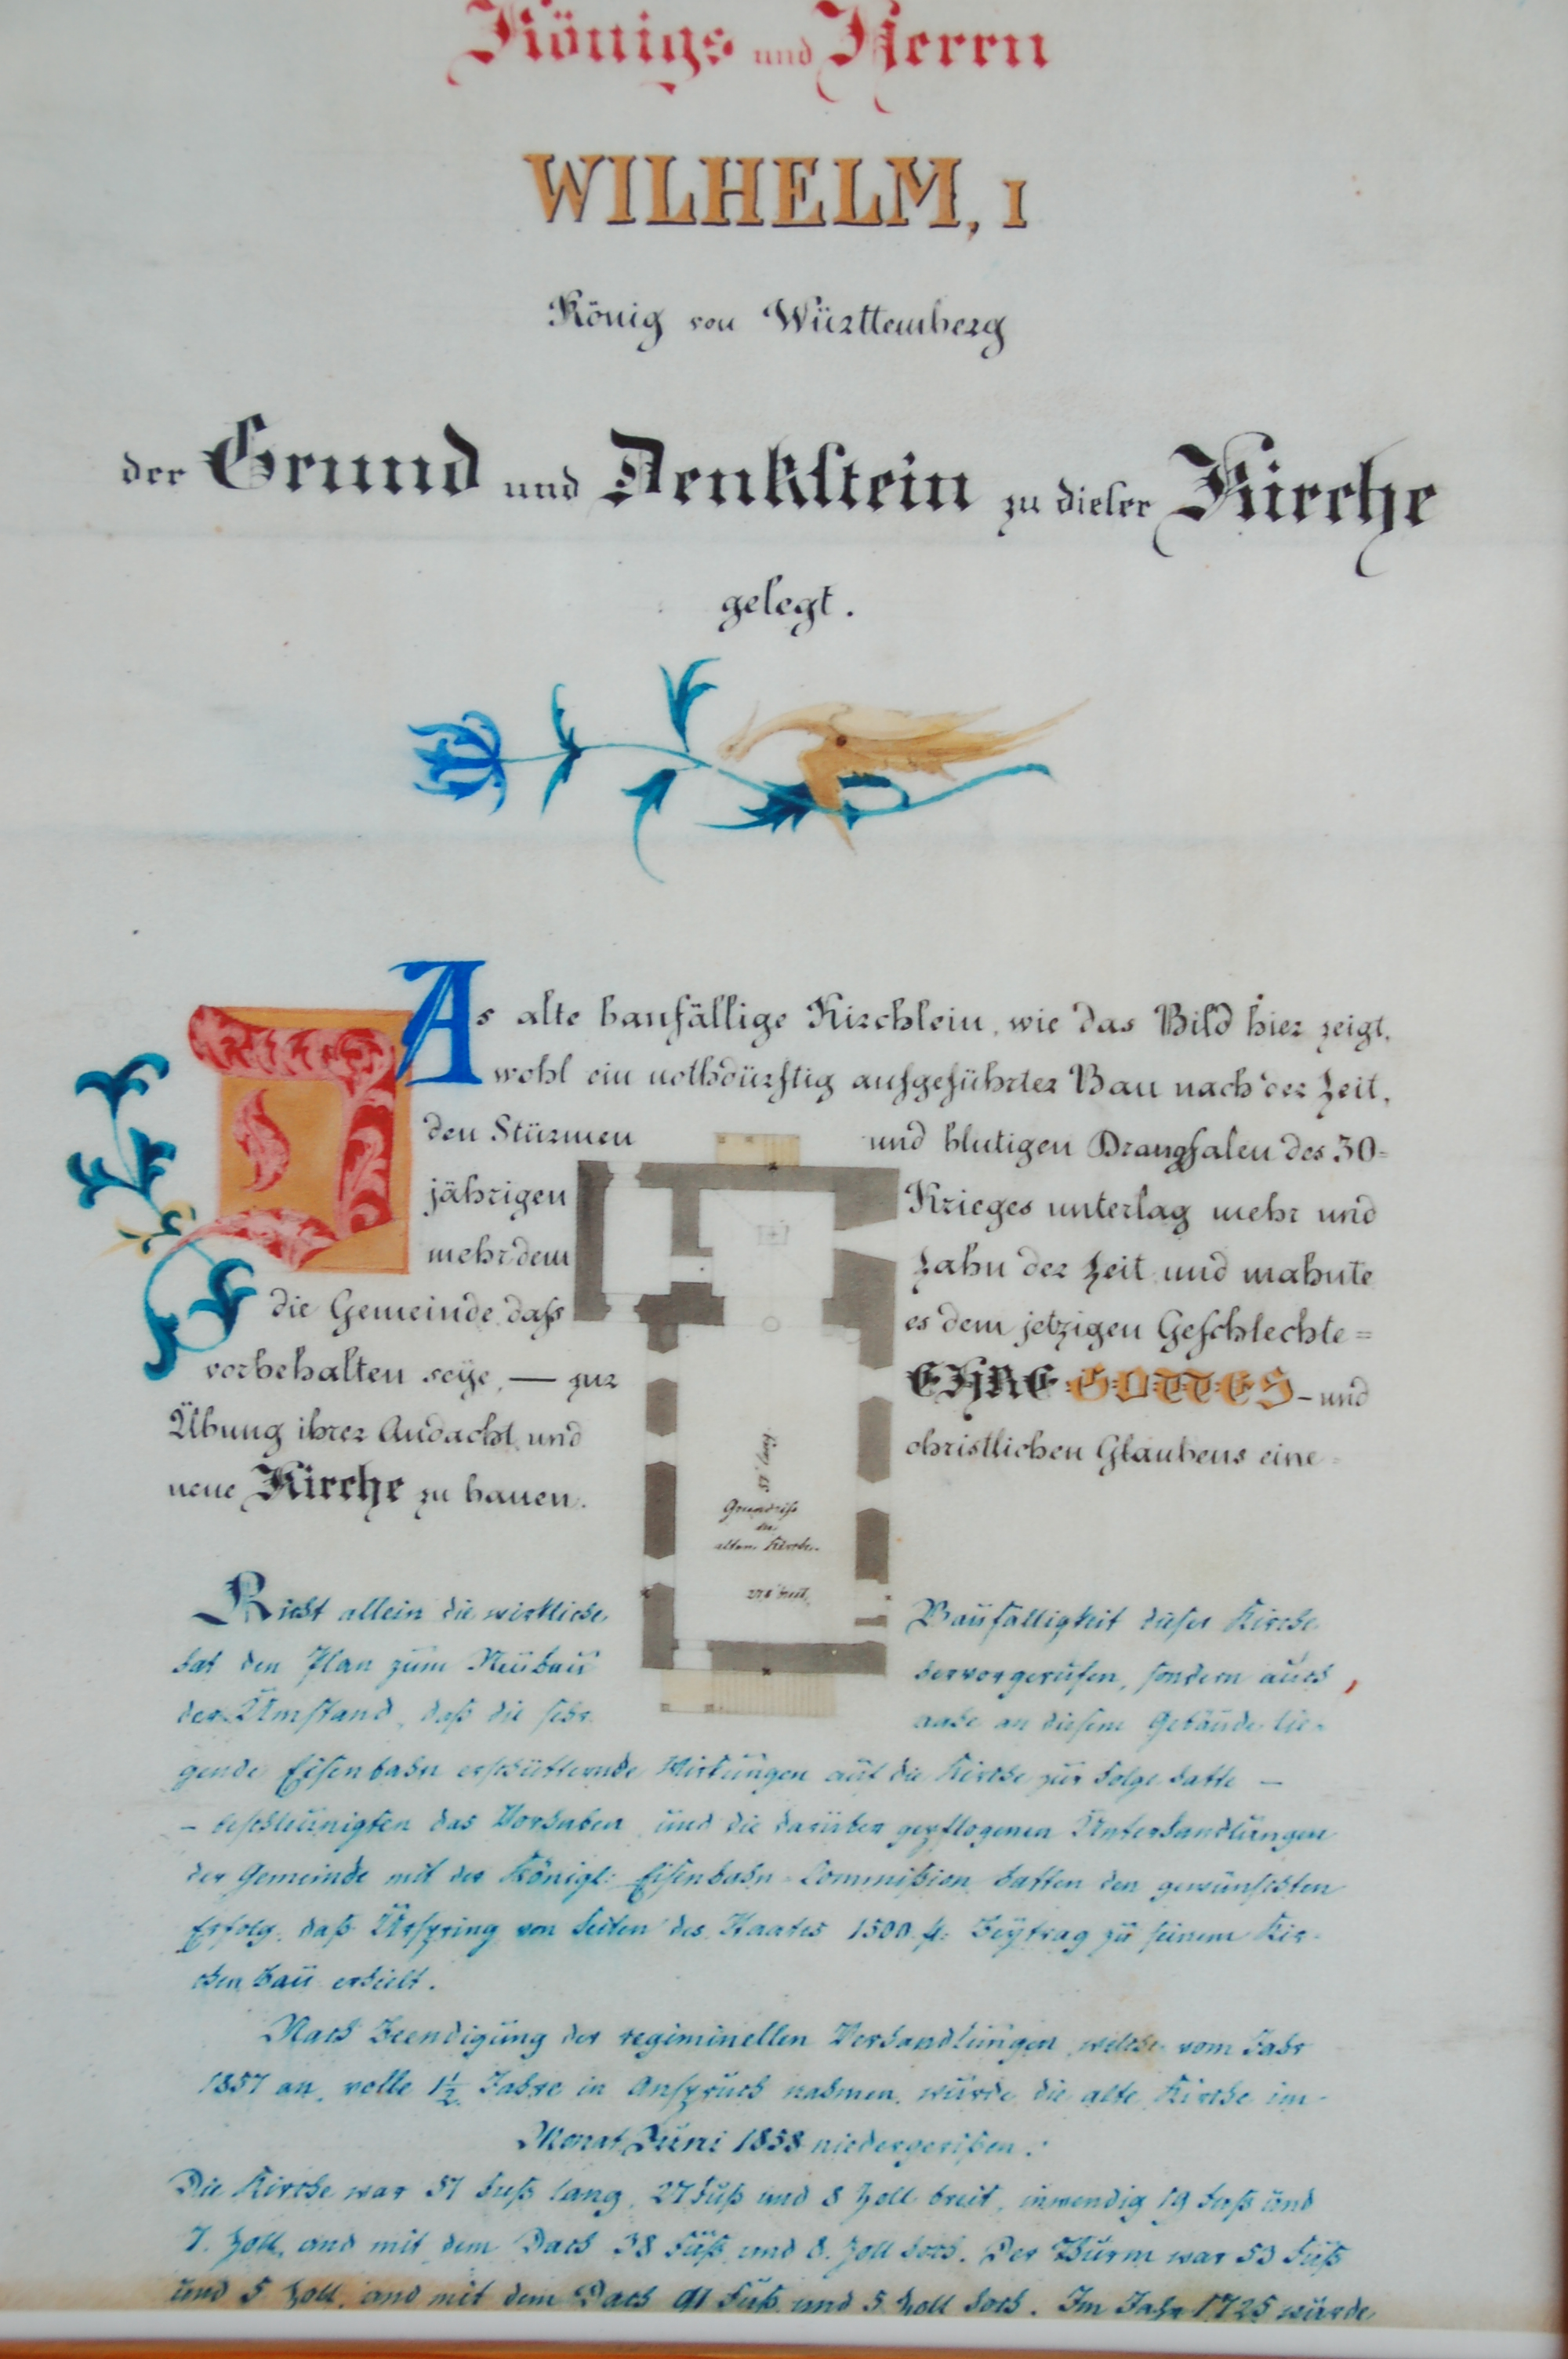 Königs und Herrn
WILHELM, I
König von Württemberg
der Grund und Denkstein zu dieser Kirche
gelegt.
DAs alte baufällige Kirchlein, wie das Bild hier zeigt,
wohl ein nothdürftig aufgeführter Bau nach der Zeit,
den Stürmen und blutigen Drangsalen des 30=
jährigen Krieges unterlag mehr und
mehr dem Zahn der Zeit und mahnte
die Gemeinde, daß es dem jetzigen Geschlechte =
vorbehalten seÿe, — zur EHRE GOTTES – und
Übung ihrer Andacht und christlichen Glaubens eine =
neue Kirche zu bauen.
57' lang
Grundriß
der
alten Kirche.
27,8' breit
Nicht allein die wirkliche Baufälligkeit dieser Kirche
hat den Plan zum Neubau hervorgerufen, sondern auch,
der Umstand, daß die sehr nahe an diesem Gebäude lie=
gende Eisenbahn erschütternde Wirkungen auf die Kirche zur Folge hatte —
– beschleunigten das Vorhaben, und die darüber gepflogenen Unterhandlungen
der Gemeinde mit der Königl: Eisenbahn=Commißion hatten den gewünschten
Erfolg, daß Urspring von Seiten des Staates 1500 fl: Beÿtrag zu seinem Kir=
chenbau erhielt.
Nach Beendigung der regiminellen Verhandlungen, welche vom Jahr
1857 an, volle 1½ Jahre in Anspruch nahmen, wurde die alte Kirche im
Monat Juni 1858 niedergerißen.
Die Kirche war 57 Fuß lang, 27 Fuß und 8 Zoll breit, inwendig 19 Fuß und
7. Zoll, und mit dem Dach 38 Fuß und 8. Zoll hoch. Der Thurm war 53 Fuß
und 5 Zoll, und mit dem Dach 91 Fuß und 5 Zoll hoch. Im Jahr 1725 wurde